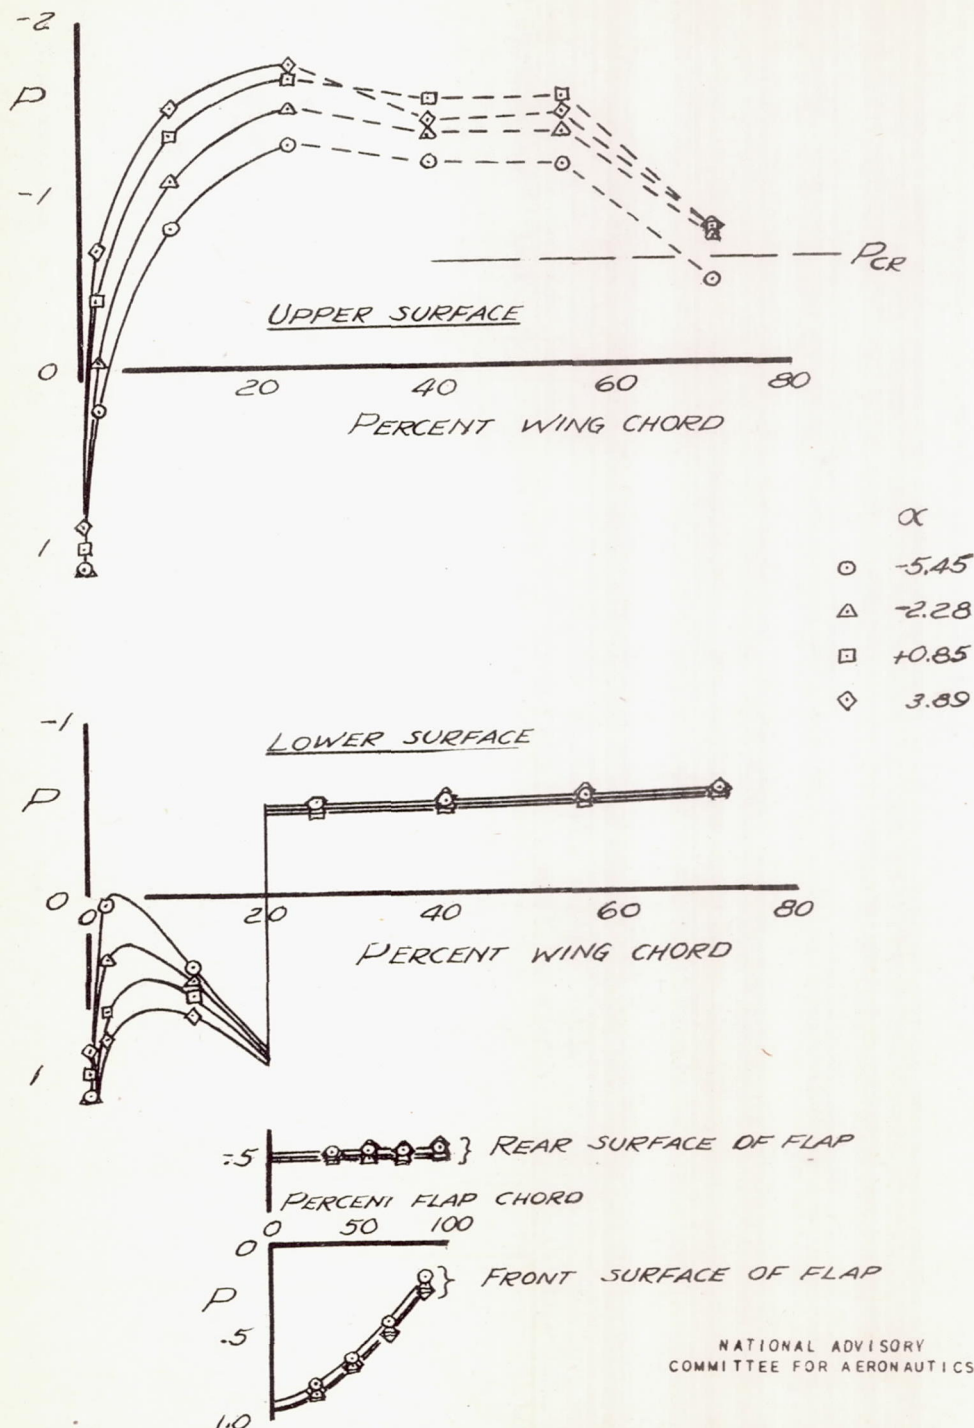 -2
P
-1
PCR
UPPER SURFACE
0
20 40 60 80
PERCENT WING CHORD
1
α
-5.45
-2.28
+0.85
3.89
-1
LOWER SURFACE
P
0
0 20 40 60 80
PERCENT WING CHORD
1
-.5
} REAR SURFACE OF FLAP
PERCENT FLAP CHORD
0 50 100
0
} FRONT SURFACE OF FLAP
P
.5
NATIONAL ADVISORY
COMMITTEE FOR AERONAUTICS
1.0